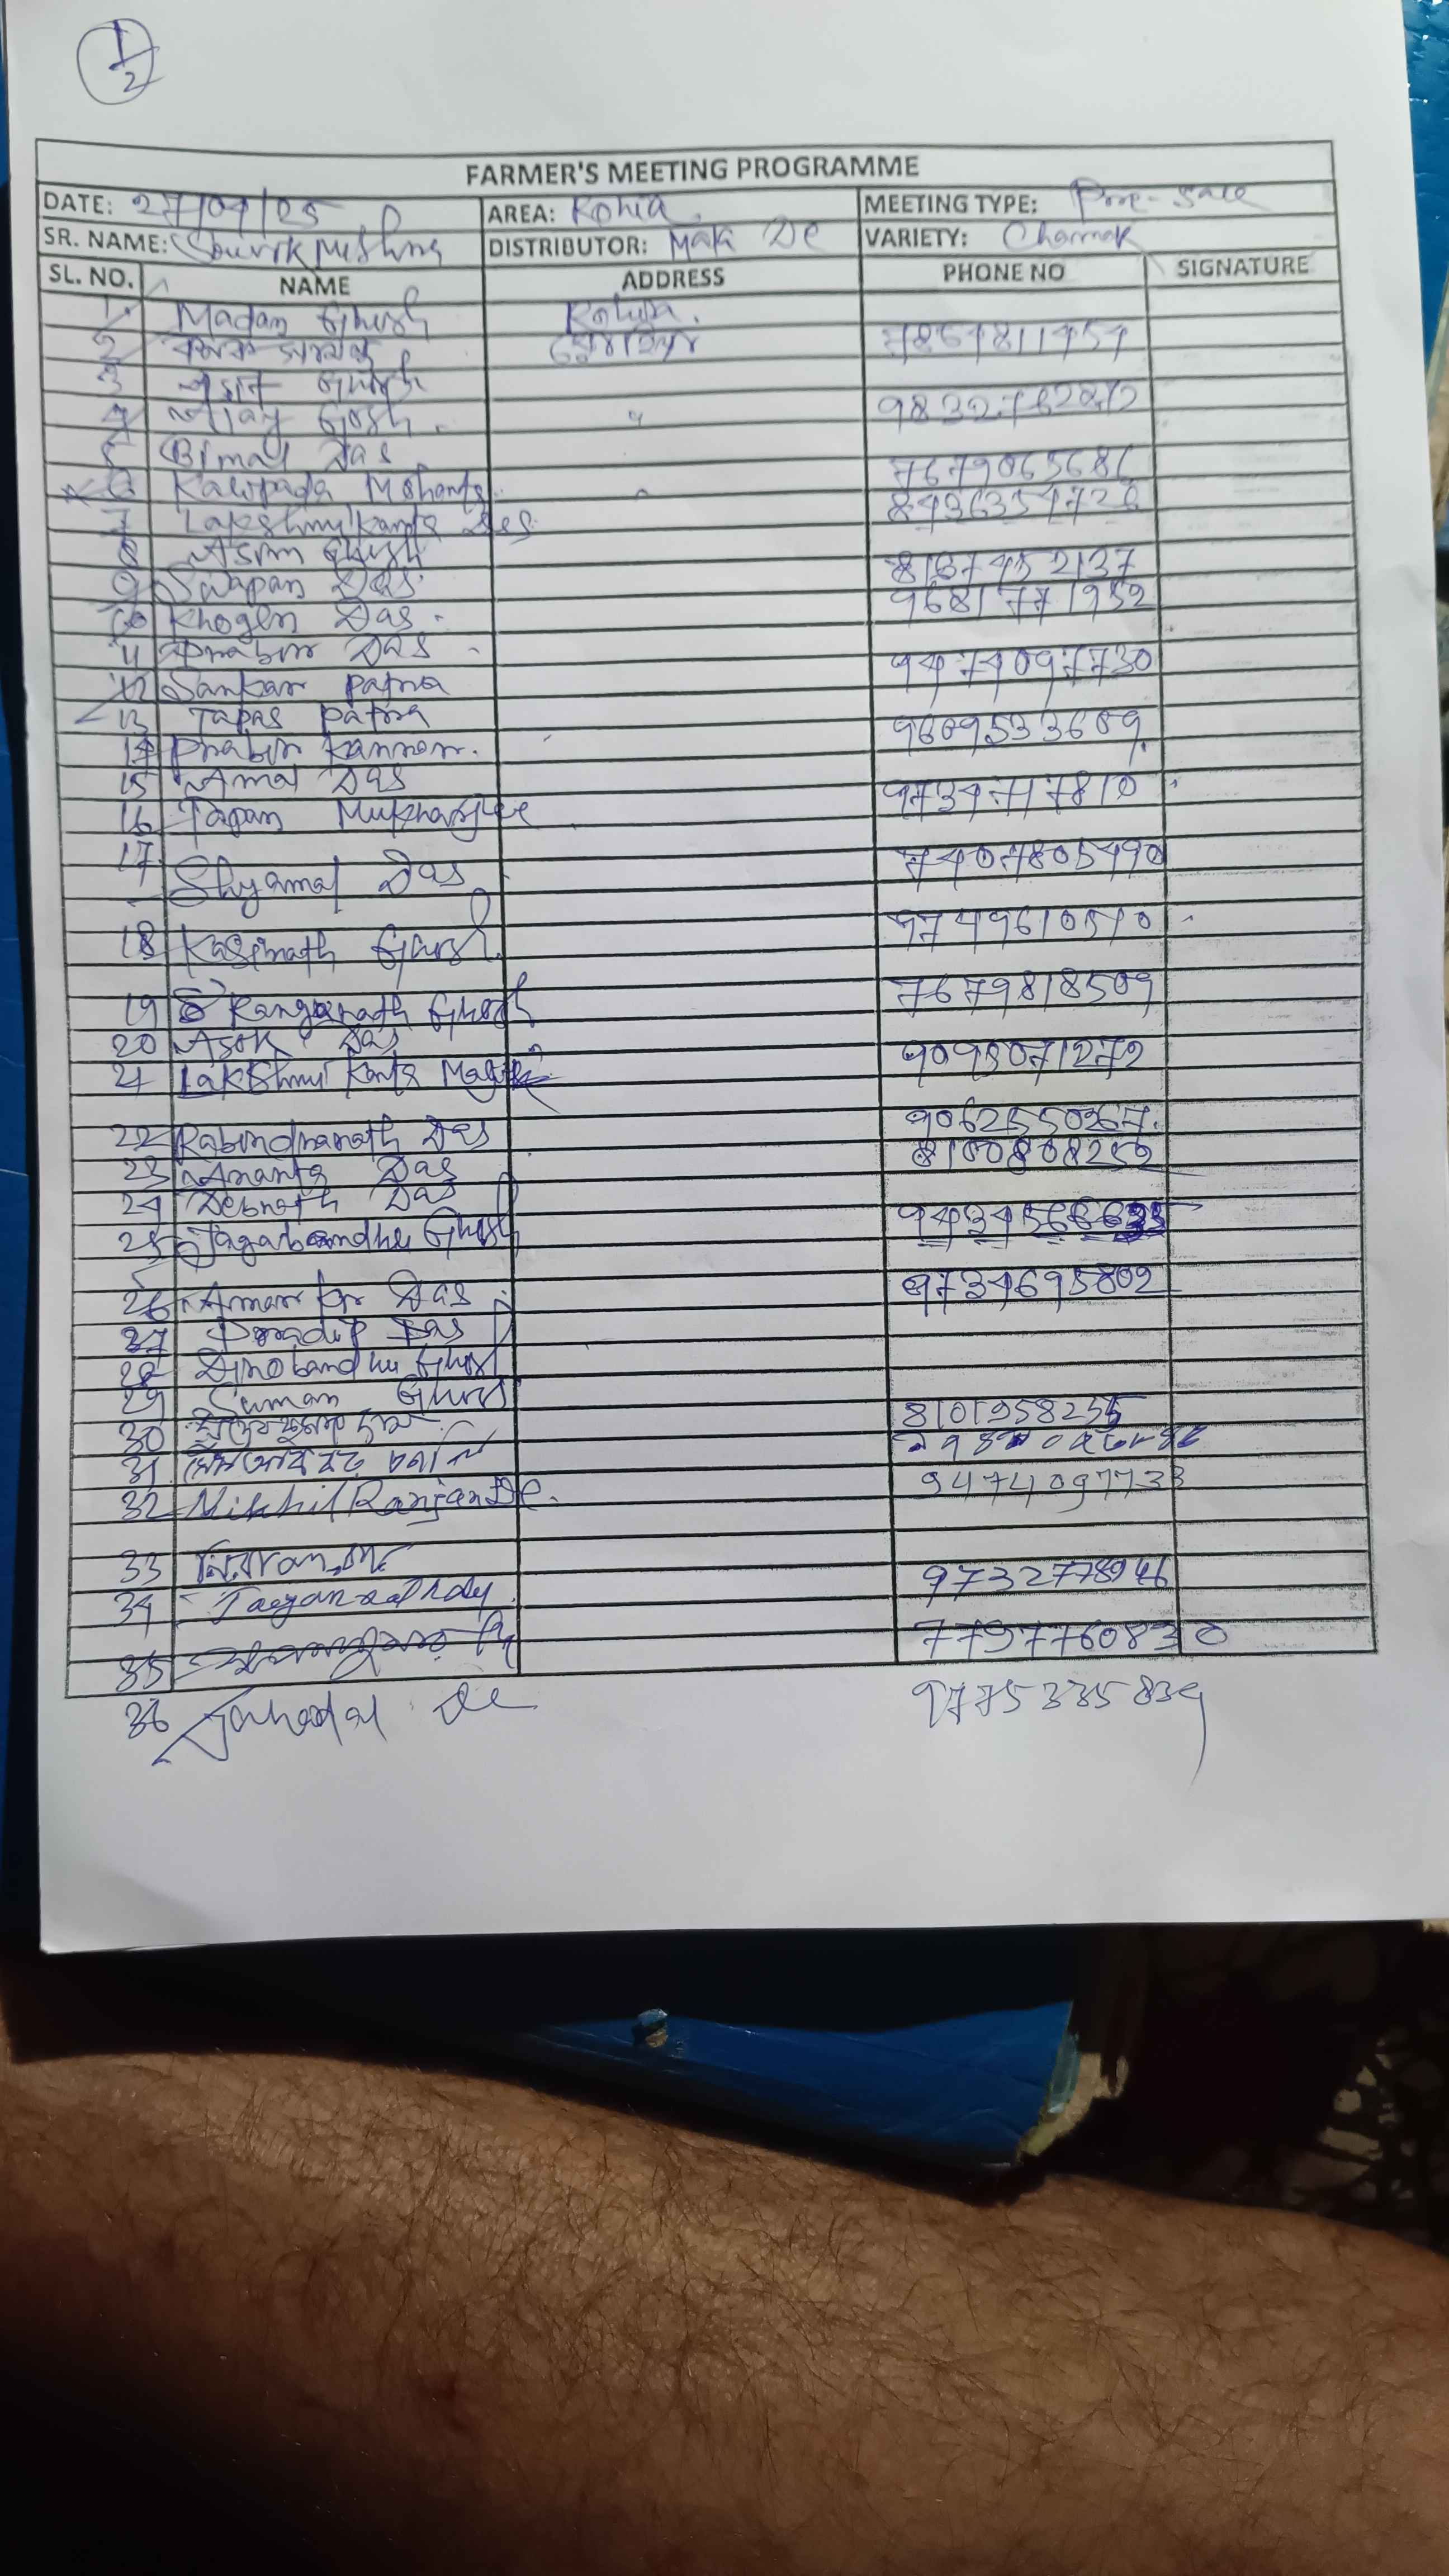 1/2
FARMER'S MEETING PROGRAMME
DATE: 27/04/25 AREA: Rohia. MEETING TYPE: Pre-sale
SR. NAME: Souvik Mishra DISTRIBUTOR: Mata De VARIETY: Chamak
SL. NO. NAME ADDRESS PHONE NO SIGNATURE
1 Madan Ghosh Rohia.
2 7864811454
3 Ghosh
4 Ajay Gosh. " 9832762842
5 Bimal Das
6 Kalipada Mohanta 7679065686
7 Lakshmi Kanta Das. 8436354726
8 Asim Ghosh
9 Swapan Das. 8167452137
10 Khogen Das. 9681771952
11 Prabir Das
12 Sankar Patra 9474097730
13 Tapas Patra
14 Prabir 9609533609
15 Amal Das
16 Tapan Mukharjee 9734717810
17 Shyamal Das 7407805490
18 Kasinath Ghosh 9749610510
19 Ranganath Ghosh 7679818509
20 Asok Das
21 Lakshmi Kanta 9093071272
22 Rabindranath Das 9062550367.
23 Ananta Das 8100808252
24 Debnath Das
25 Jagabandhu Ghosh
26 Amar Kr Das 9734695802
27 Pradip Das
28 Dinobandhu Ghosh
29 Suman Ghosh
30 8101958255
31
32 Nikhil Ranjan De. 9474097733
33
34 9732778946
35 7797760830
36 De 9775335839